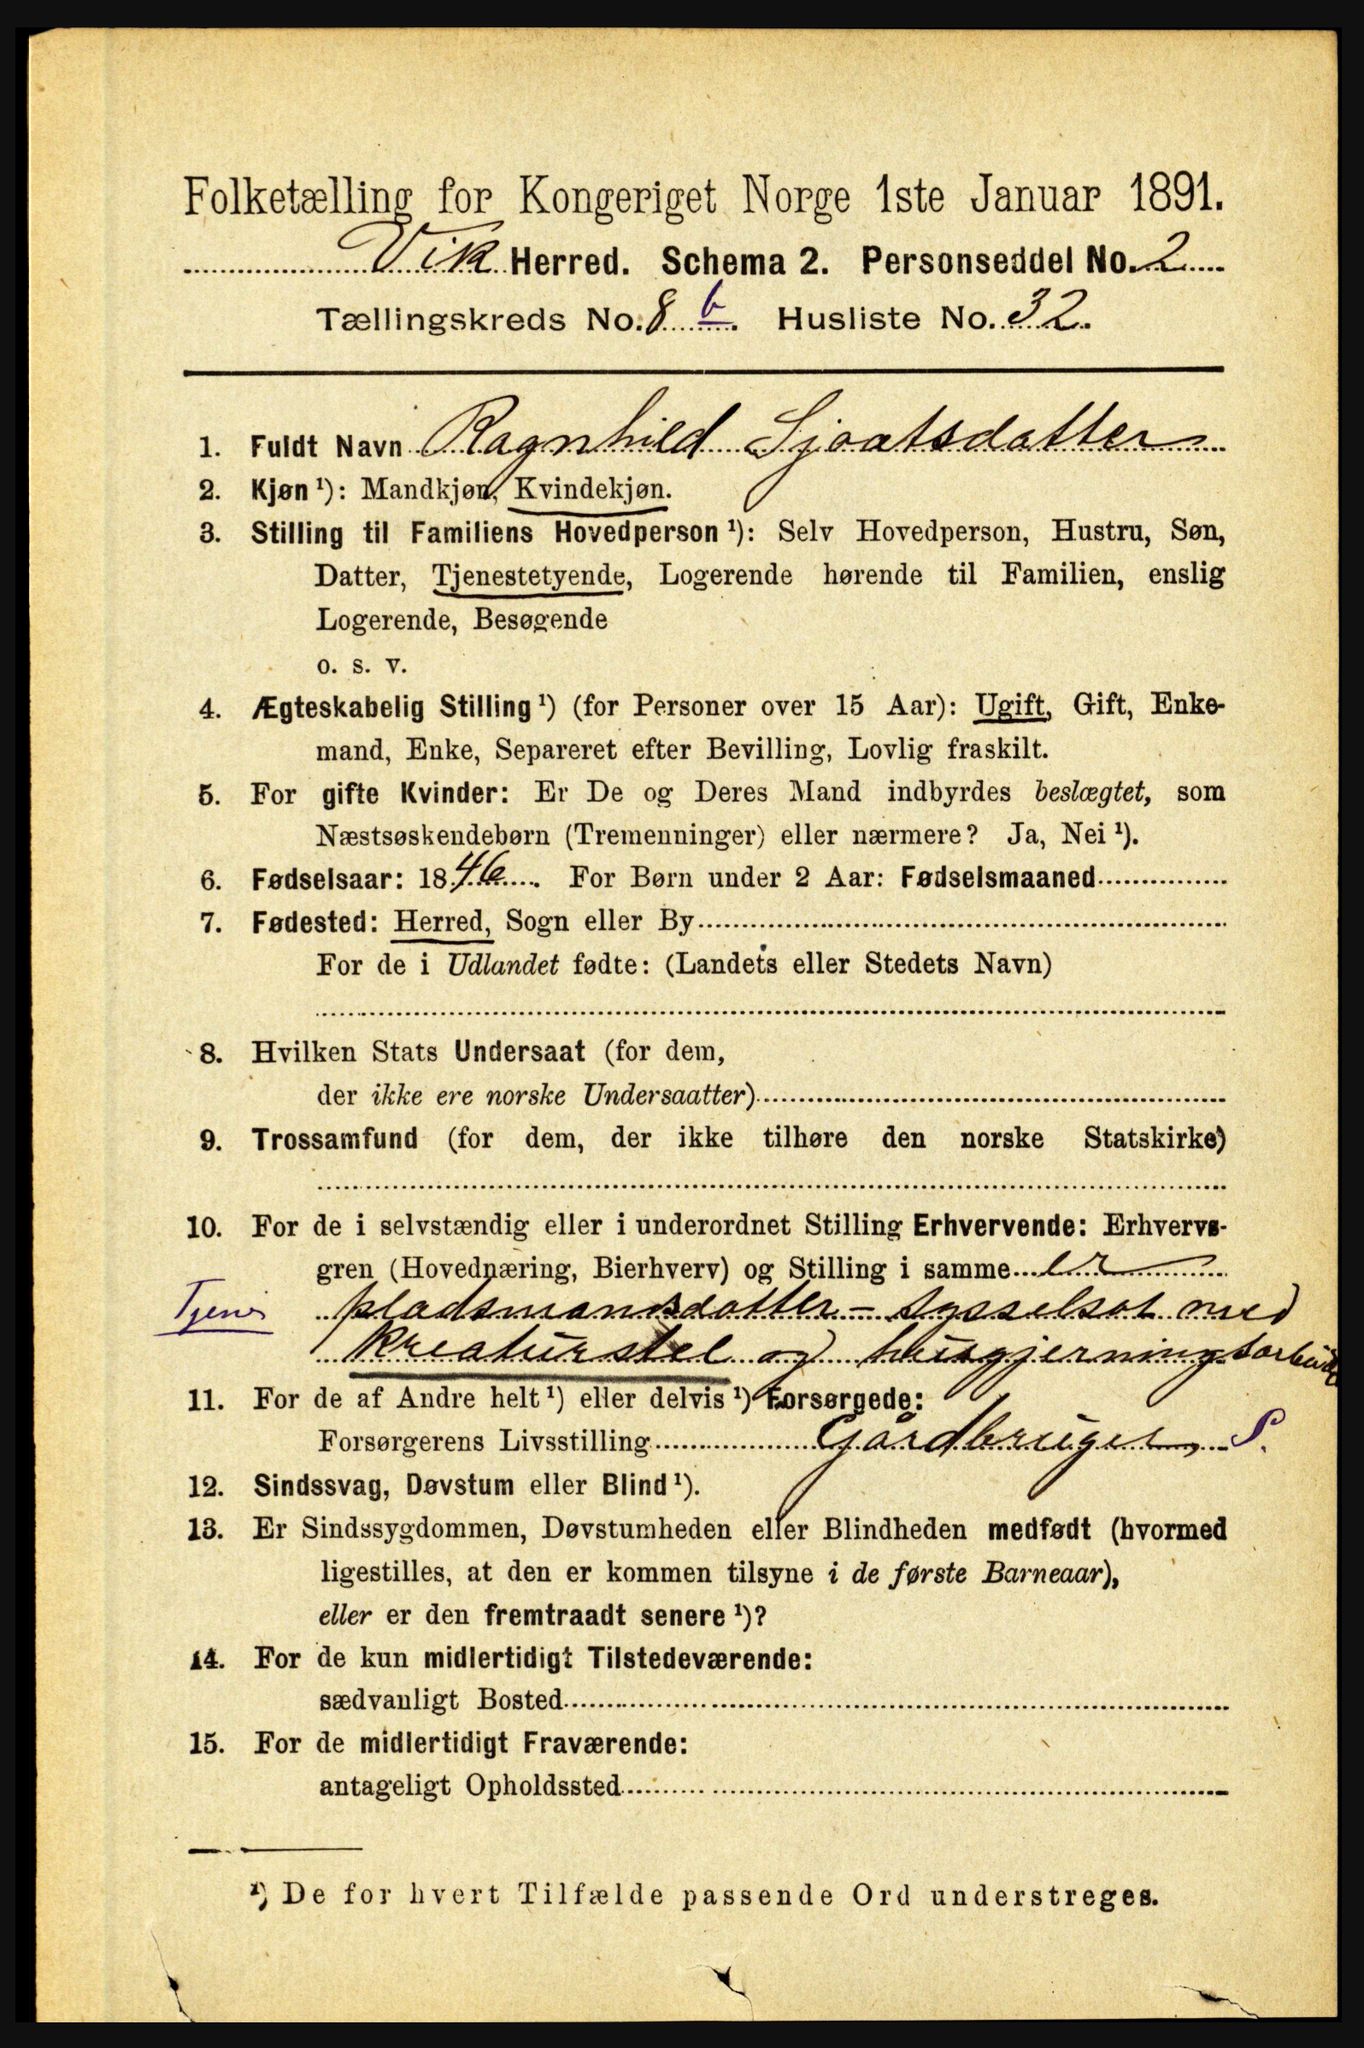 Folketælling for Kongeriget Norge 1ste Januar 1891.
Vik Herred. Schema 2. Personseddel No. 2
Tællingskreds No. 8 b. Husliste No. 32.
1. Fuldt Navn Ragnhild Sjoatsdatter
2. Kjøn ¹): Mandkjøn, Kvindekjøn.
3. Stilling til Familiens Hovedperson ¹): Selv Hovedperson, Hustru, Søn,
Datter, Tjenestetyende, Logerende hørende til Familien, enslig
Logerende, Besøgende
o. s. v.
4. Ægteskabelig Stilling ¹) (for Personer over 15 Aar): Ugift, Gift, Enke-
mand, Enke, Separeret efter Bevilling, Lovlig fraskilt.
5. For gifte Kvinder: Er De og Deres Mand indbyrdes beslægtet, som
Næstsøskendebørn (Tremenninger) eller nærmere? Ja, Nei ¹).
6. Fødselsaar: 1846. For Børn under 2 Aar: Fødselsmaaned
7. Fødested: Herred, Sogn eller By
For de i Udlandet fødte: (Landets eller Stedets Navn)
8. Hvilken Stats Undersaat (for dem,
der ikke ere norske Undersaatter)
9. Trossamfund (for dem, der ikke tilhøre den norske Statskirke)
10. For de i selvstændig eller i underordnet Stilling Erhvervende: Erhvervs-
gren (Hovednæring, Bierhverv) og Stilling i samme er
pladsmandsdatter - sysselsat med
kreaturstel og husgjerningsarbeide
11. For de af Andre helt ¹) eller delvis ¹) Forsørgede:
Forsørgerens Livsstilling Gårdbruger, S.
12. Sindssvag, Døvstum eller Blind ¹).
13. Er Sindssygdommen, Døvstumheden eller Blindheden medfødt (hvormed
ligestilles, at den er kommen tilsyne i de første Barneaar),
eller er den fremtraadt senere ¹)?
14. For de kun midlertidigt Tilstedeværende:
sædvanligt Bosted
15. For de midlertidigt Fraværende:
antageligt Opholdssted
¹) De for hvert Tilfælde passende Ord understreges.